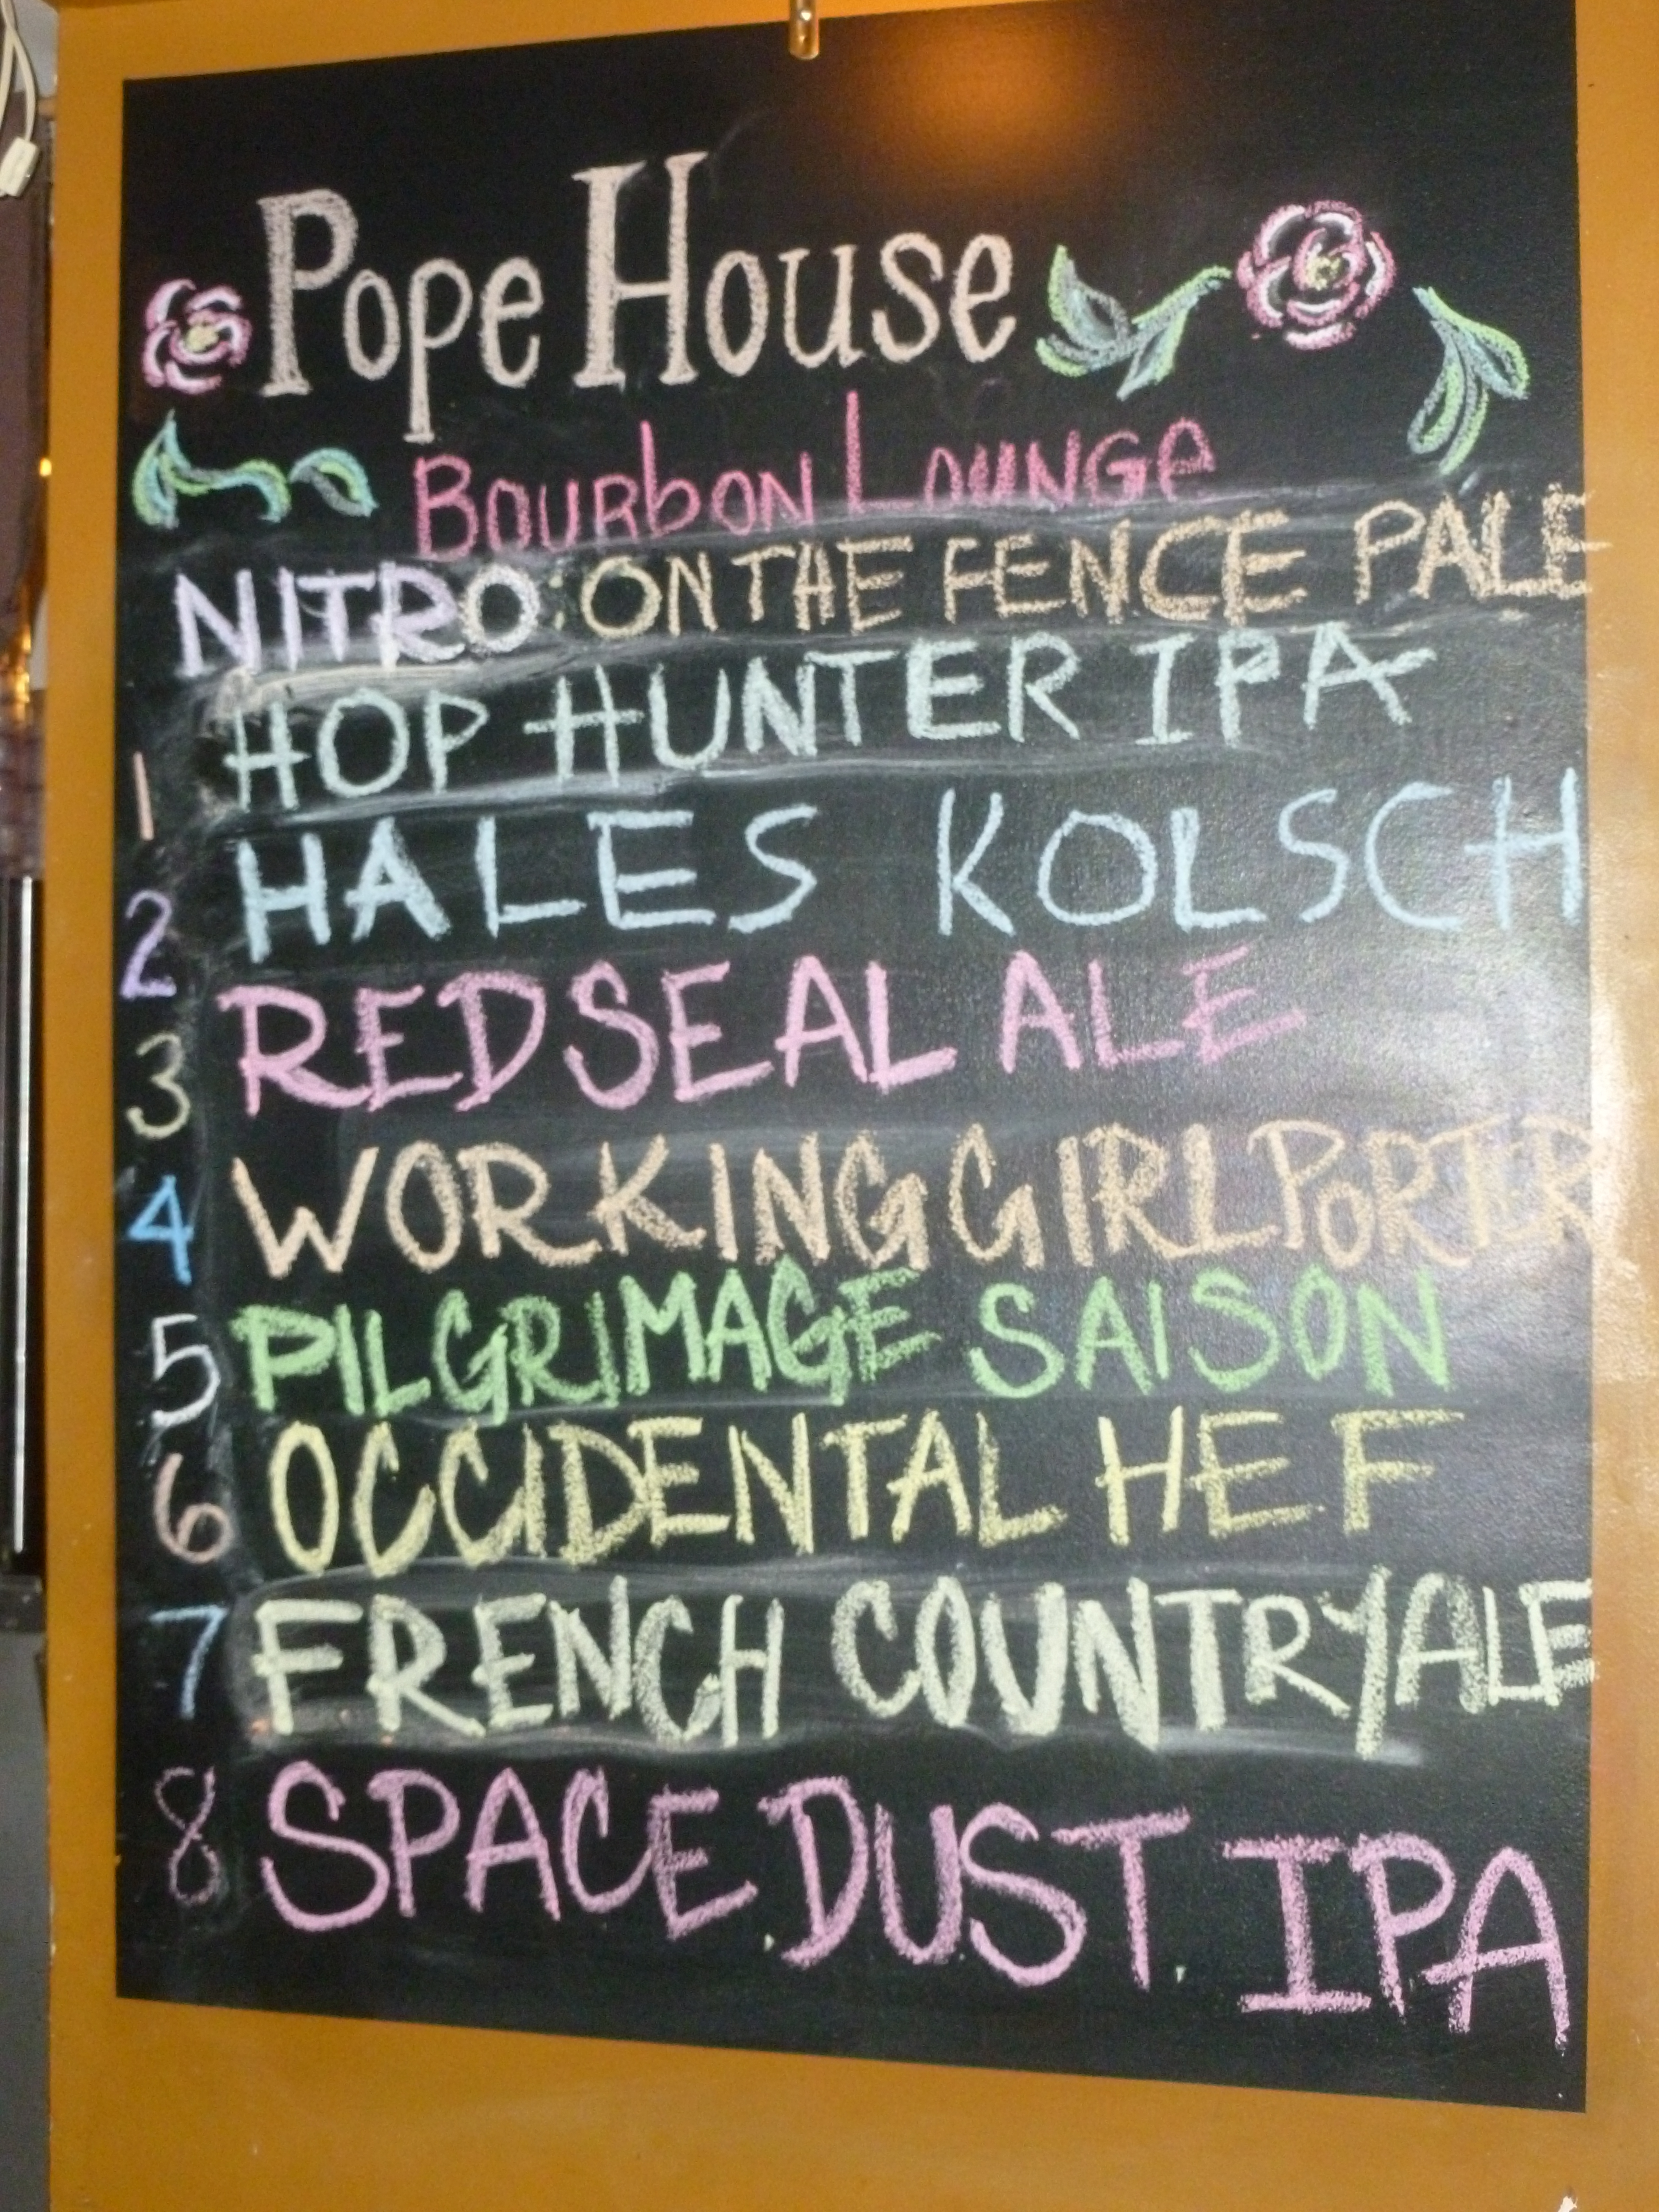 Pope House
Bourbon Lounge
NITRO: ON THE FENCE PALE
1 HOP HUNTER IPA
2 HALES KOLSCH
3 RED SEAL ALE
4 WORKING GIRL PORTER
5 PILGRIMAGE SAISON
6 OCCIDENTAL HEF
7 FRENCH COUNTRY ALE
8 SPACE DUST IPA